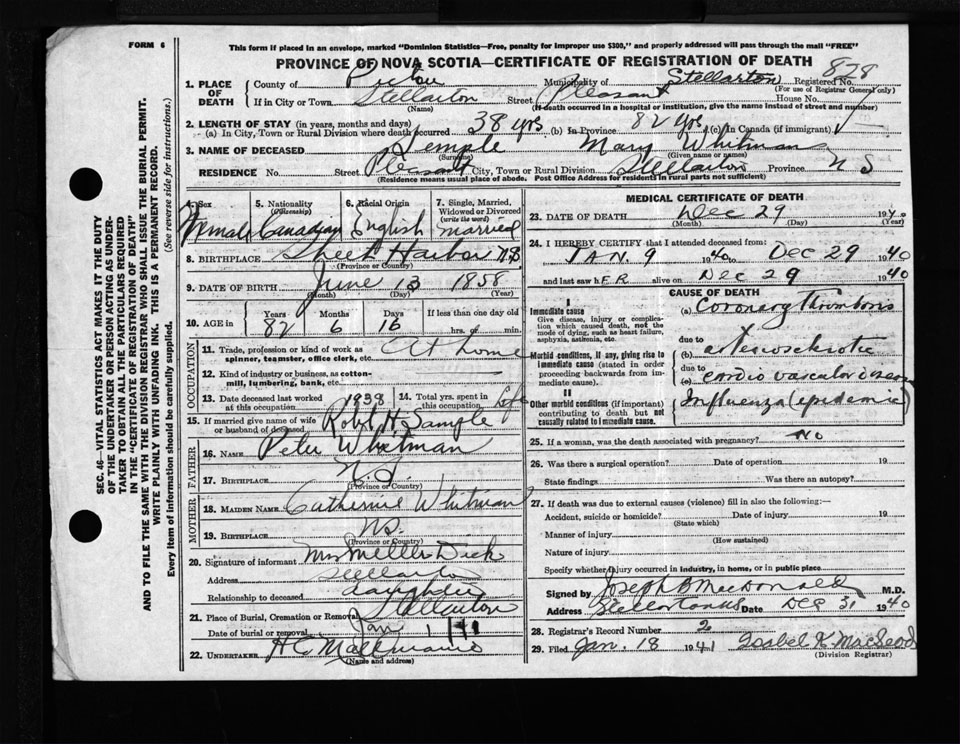 FORM 6
This form if placed in an envelope, marked "Dominion Statistics—Free, penalty for improper use $300," and properly addressed will pass through the mail "FREE"
PROVINCE OF NOVA SCOTIA—CERTIFICATE OF REGISTRATION OF DEATH
SEC. 46—VITAL STATISTICS ACT MAKES IT THE DUTY
OF THE UNDERTAKER OR PERSON ACTING AS UNDERTAKER
TO OBTAIN ALL THE PARTICULARS REQUIRED
IN THE "CERTIFICATE OF REGISTRATION OF DEATH"
AND TO FILE THE SAME WITH THE DIVISION REGISTRAR WHO SHALL ISSUE THE BURIAL PERMIT.
WRITE PLAINLY WITH UNFADING INK. THIS IS A PERMANENT RECORD.
Every item of Information should be carefully supplied. (See reverse side for instructions.)
1. PLACE OF DEATH County of Pictou Municipality of Stellarton Registered No. 878
(For use of Registrar General only)
If in City or Town Stellarton Street Pleasant House No.
(Name) (If death occurred in a hospital or institution, give the name instead of street and number)
2. LENGTH OF STAY (in years, months and days)
(a) In City, Town or Rural Division where death occurred 38 yrs (b) In Province 82 yrs (c) In Canada (if immigrant)
3. NAME OF DECEASED Semple Mary Whitman
(Surname) (Given name or names)
RESIDENCE No. Street Pleasant City, Town or Rural Division Stellarton Province N S
(Residence means usual place of abode. Post Office Address for residents in rural parts not sufficient)
4. Sex Female
5. Nationality (Citizenship) Canadian
6. Racial Origin English
7. Single, Married, Widowed or Divorced (write the word) married
8. BIRTHPLACE Sheet Harbor N.S
(Province or Country)
9. DATE OF BIRTH June 13 1858
(Month) (Day) (Year)
10. AGE in Years 82 Months 6 Days 16 If less than one day old hrs. or min.
OCCUPATION
11. Trade, profession or kind of work as spinner, teamster, office clerk, etc. At home
12. Kind of industry or business, as cotton-mill, lumbering, bank, etc.
13. Date deceased last worked at this occupation 1938
14. Total yrs. spent in this occupation Life
15. If married give name of wife or husband of deceased Robt H. Sample
FATHER
16. NAME Peter Whitman
17. BIRTHPLACE N.S.
(Province or Country)
MOTHER
18. MAIDEN NAME Catherine Whitman
19. BIRTHPLACE NS.
(Province or Country)
20. Signature of informant Mrs Dick
Address Stellarton
Relationship to deceased daughter
21. Place of Burial, Cremation or Removal Stellarton
Date of burial or removal Jan 1
22. UNDERTAKER
(Name and address)
MEDICAL CERTIFICATE OF DEATH
23. DATE OF DEATH Dec 29 1940
(Month) (Day) (Year)
24. I HEREBY CERTIFY that I attended deceased from:
JAN. 9 1940 to Dec 29 1940
and last saw hER alive on Dec 29 1940
CAUSE OF DEATH
I
Immediate cause
Give disease, injury or complication which caused death, not the mode of dying, such as heart failure, asphyxia, asthenia, etc.
(a) Coronary thrombosis
Morbid conditions, if any, giving rise to immediate cause (stated in order proceeding backwards from immediate cause).
due to
(b) arteriosclerotic
due to
(c) cardio vascular disease
II
Other morbid conditions (if important) contributing to death but not causally related to immediate cause.
Influenza (epidemic)
25. If a woman, was the death associated with pregnancy? No
26. Was there a surgical operation? Date of operation 19
State findings Was there an autopsy?
27. If death was due to external causes (violence) fill in also the following:—
Accident, suicide or homicide? Date of injury 19
(State which)
Manner of injury
(How sustained)
Nature of injury
Specify whether injury occurred in industry, in home, or in public place
Signed by Joseph B MacDonald M.D.
Address Stellarton NS Date Dec 31 1940
28. Registrar's Record Number 2
29. Filed Jan. 18 1941 Isabel K. MacLeod
(Division Registrar)